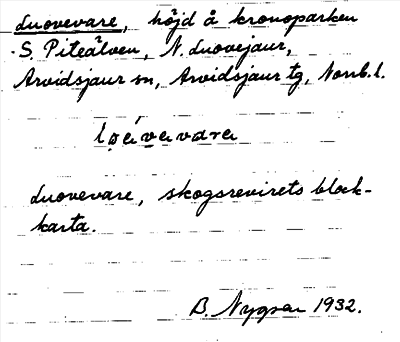 Luovevare, höjd å kronoparken
S. Piteälven, N. Luovejaur,
Arvidsjaur sn, Arvidsjaur tg, Norrb. l.
Luovevare, skogsrevirets block-
karta.
B. 1932.